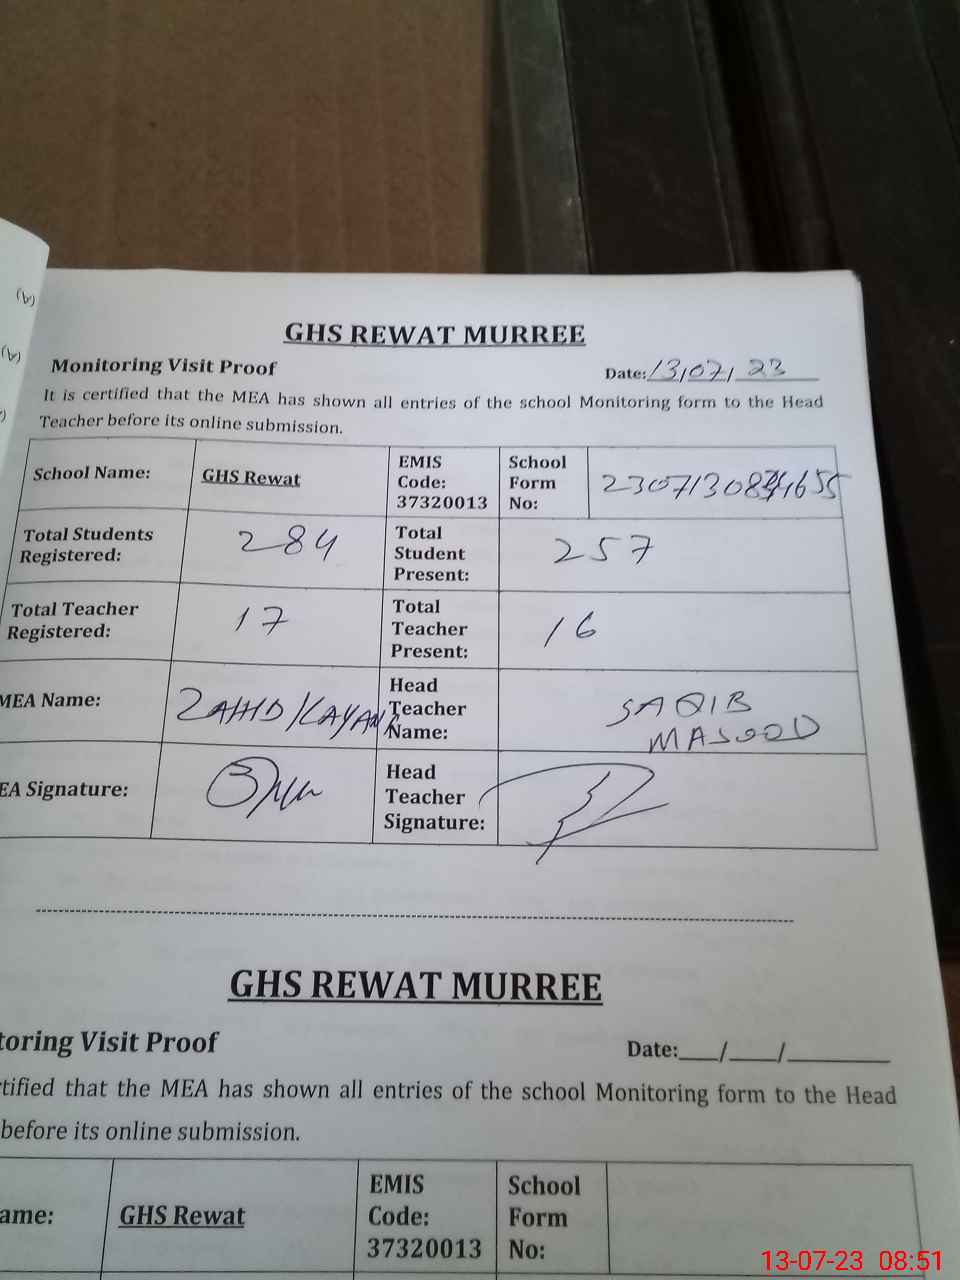 (b)
(b)
GHS REWAT MURREE
Monitoring Visit Proof Date: 13/07/23
It is certified that the MEA has shown all entries of the school Monitoring form to the Head
Teacher before its online submission.
School Name: GHS Rewat EMIS Code: 37320013 School Form No:
Total Students Registered: 284 Total Student Present: 257
Total Teacher Registered: 17 Total Teacher Present: 16
MEA Name: ZAHID KAYANI Head Teacher Name: SAQIB MASOOD
EA Signature: Head Teacher Signature:
GHS REWAT MURREE
toring Visit Proof Date:___/____/________
rtified that the MEA has shown all entries of the school Monitoring form to the Head
before its online submission.
ame: GHS Rewat EMIS Code: 37320013 School Form No:
13-07-23 08:51